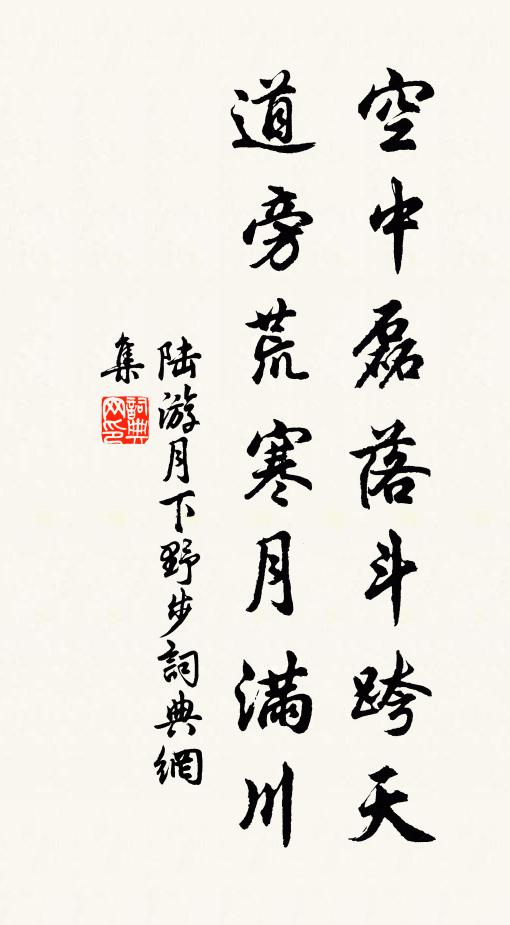 空中磊落斗跨天
道旁荒寒月滿川
陆游月下野步詞典網
集
詞典
网印